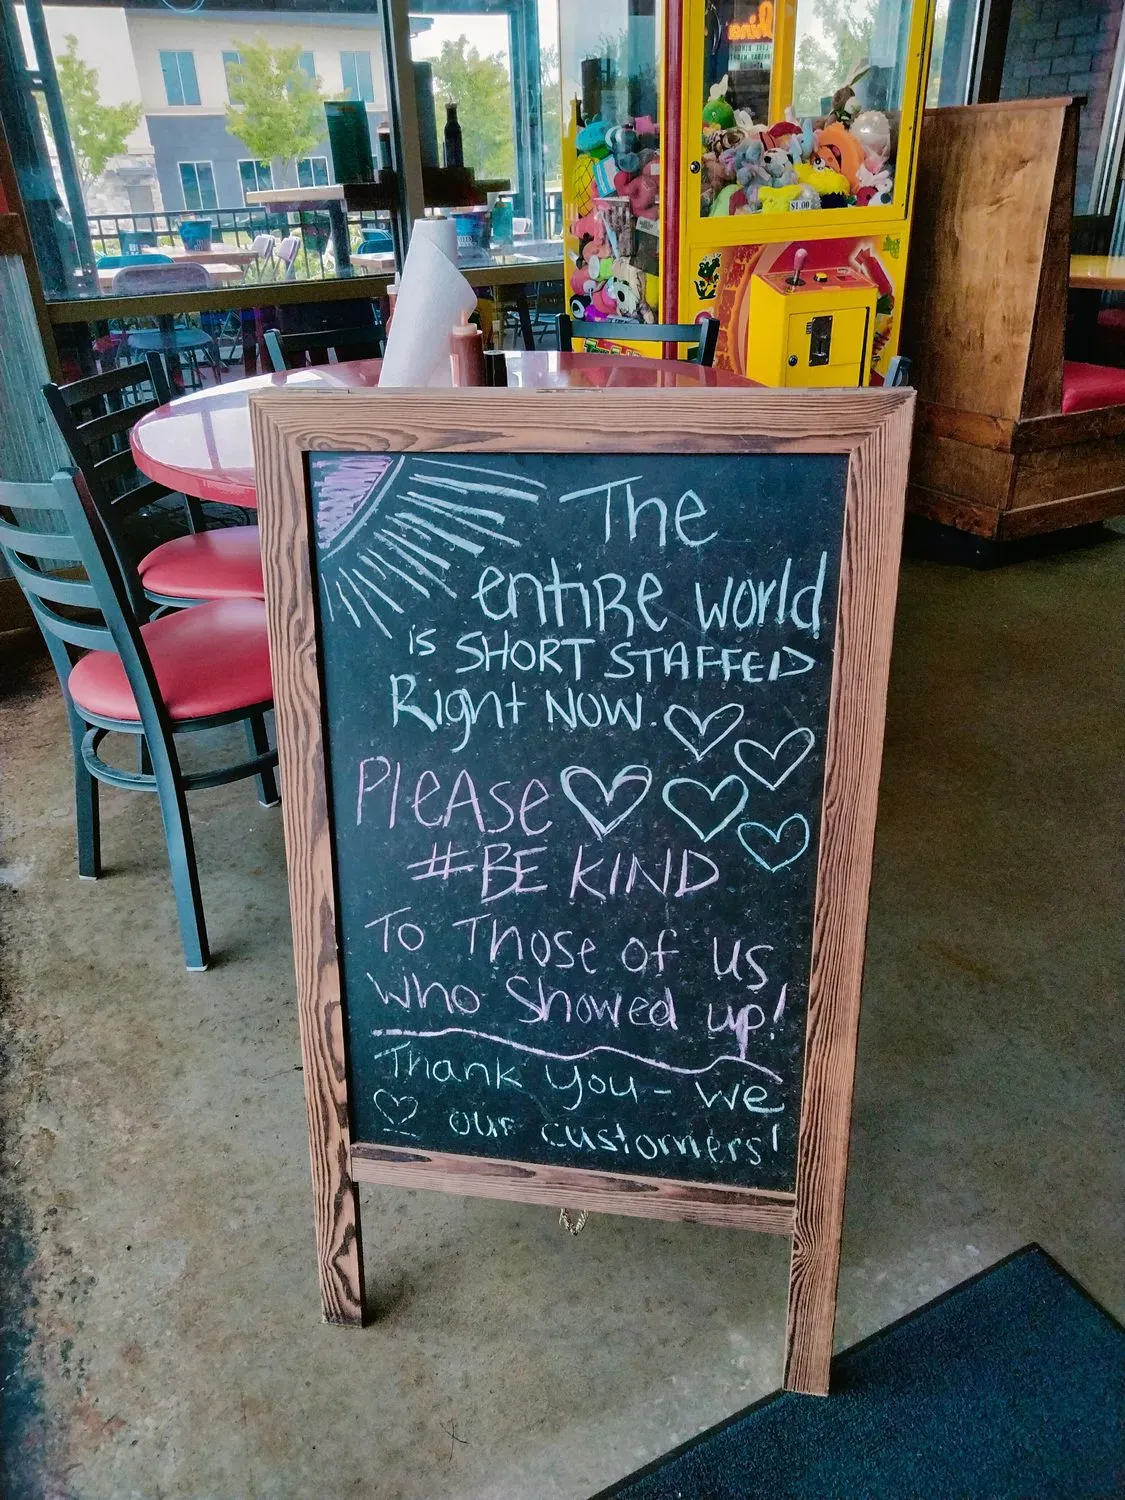 The
entiRe world
is SHORT STAFFED
Right NOW.
PleAse
#BE KIND
To Those of us
who Showed up!
Thank you - we
♡ our customers!
$1.00